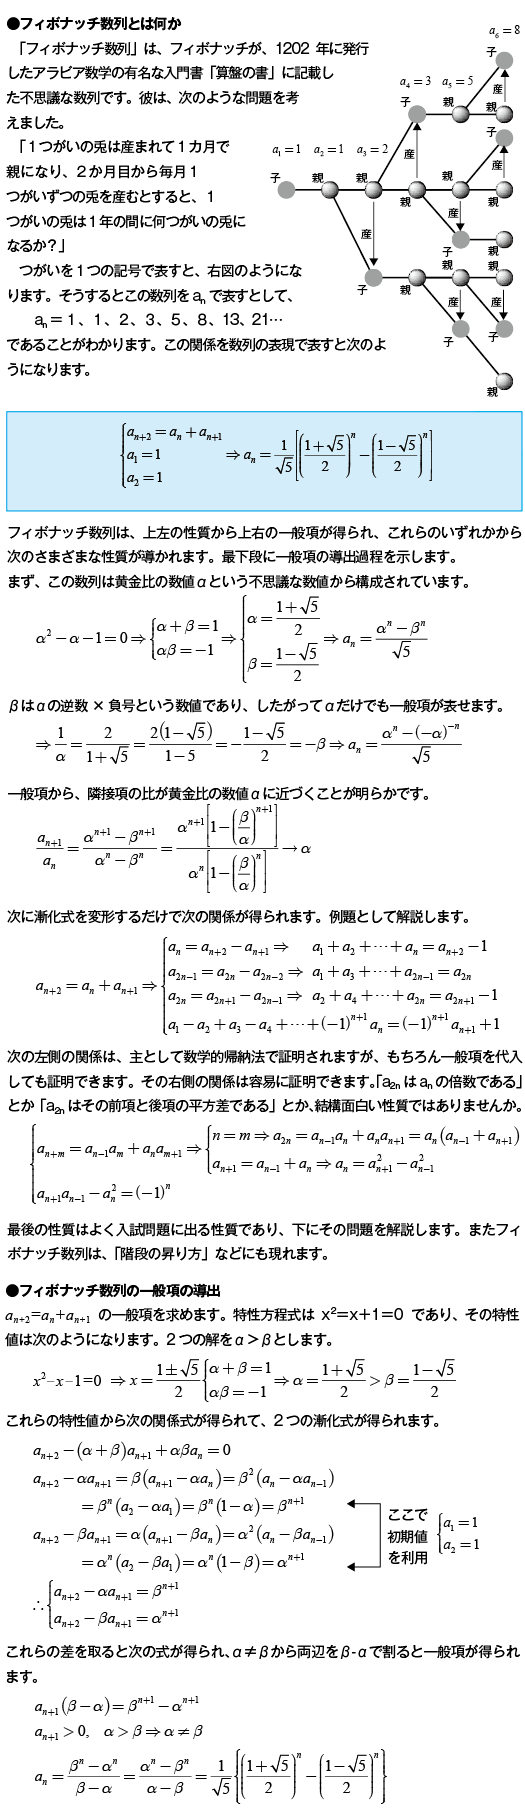 ●フィボナッチ数列とは何か
「フィボナッチ数列」は、フィボナッチが、1202 年に発行
したアラビア数学の有名な入門書「算盤の書」に記載し
た不思議な数列です。彼は、次のような問題を考
えました。
「1つがいの兎は産まれて1カ月で
親になり、2か月目から毎月1
つがいずつの兎を産むとすると、1
つがいの兎は1年の間に何つがいの兎に
なるか?」
つがいを1つの記号で表すと、右図のようにな
ります。そうするとこの数列を aₙ で表すとして、
aₙ= 1、1、2、3、5、8、13、21…
であることがわかります。この関係を数列の表現で表すと次のよ
うになります。
a₆ = 8
子
産
a₄ = 3 a₅ = 5
子 親 親
子
産 産
a₁ = 1 a₂ = 1 a₃ = 2
子 親 親 親 親 親
産 産
子 親
親 親
子 親
産 産
子 子
親
{aₙ₊₂ = aₙ + aₙ₊₁
a₁ = 1
a₂ = 1
⇒ aₙ = 1/√5 [((1+√5)/2)ⁿ − ((1−√5)/2)ⁿ]
フィボナッチ数列は、上左の性質から上右の一般項が得られ、これらのいずれかから
次のさまざまな性質が導かれます。最下段に一般項の導出過程を示します。
まず、この数列は黄金比の数値αという不思議な数値から構成されています。
α² − α − 1 = 0 ⇒ {α + β = 1, αβ = −1 ⇒ {α = (1+√5)/2, β = (1−√5)/2 ⇒ aₙ = (αⁿ − βⁿ)/√5
βはαの逆数 × 負号という数値であり、したがってαだけでも一般項が表せます。
⇒ 1/α = 2/(1+√5) = 2(1−√5)/(1−5) = −(1−√5)/2 = −β ⇒ aₙ = (αⁿ − (−α)⁻ⁿ)/√5
一般項から、隣接項の比が黄金比の数値αに近づくことが明らかです。
aₙ₊₁/aₙ = (αⁿ⁺¹ − βⁿ⁺¹)/(αⁿ − βⁿ) = αⁿ⁺¹[1−(β/α)ⁿ⁺¹] / αⁿ[1−(β/α)ⁿ] → α
次に漸化式を変形するだけで次の関係が得られます。例題として解説します。
aₙ₊₂ = aₙ + aₙ₊₁ ⇒
{aₙ = aₙ₊₂ − aₙ₊₁ ⇒ a₁ + a₂ + ⋯ + aₙ = aₙ₊₂ − 1
a₂ₙ₋₁ = a₂ₙ − a₂ₙ₋₂ ⇒ a₁ + a₃ + ⋯ + a₂ₙ₋₁ = a₂ₙ
a₂ₙ = a₂ₙ₊₁ − a₂ₙ₋₁ ⇒ a₂ + a₄ + ⋯ + a₂ₙ = a₂ₙ₊₁ − 1
a₁ − a₂ + a₃ − a₄ + ⋯ + (−1)ⁿ⁺¹ aₙ = (−1)ⁿ⁺¹ aₙ₊₁ + 1
次の左側の関係は、主として数学的帰納法で証明されますが、もちろん一般項を代入
しても証明できます。その右側の関係は容易に証明できます。「a₂ₙ は aₙ の倍数である」
とか「a₂ₙ はその前項と後項の平方差である」とか、結構面白い性質ではありませんか。
{aₙ₊ₘ = aₙ₋₁aₘ + aₙaₘ₊₁ ⇒ {n = m ⇒ a₂ₙ = aₙ₋₁aₙ + aₙaₙ₊₁ = aₙ(aₙ₋₁ + aₙ₊₁)
aₙ₊₁ = aₙ₋₁ + aₙ ⇒ aₙ = a²ₙ₊₁ − a²ₙ₋₁
aₙ₊₁aₙ₋₁ − aₙ² = (−1)ⁿ
最後の性質はよく入試問題に出る性質であり、下にその問題を解説します。またフィ
ボナッチ数列は、「階段の昇り方」などにも現れます。
●フィボナッチ数列の一般項の導出
aₙ₊₂=aₙ+aₙ₊₁ の一般項を求めます。特性方程式は x²=x+1=0 であり、その特性
値は次のようになります。2つの解をα＞βとします。
x²−x−1=0 ⇒ x = (1±√5)/2 {α + β = 1, αβ = −1 ⇒ α = (1+√5)/2 > β = (1−√5)/2
これらの特性値から次の関係式が得られて、2つの漸化式が得られます。
aₙ₊₂ − (α + β)aₙ₊₁ + αβaₙ = 0
aₙ₊₂ − αaₙ₊₁ = β(aₙ₊₁ − αaₙ) = β²(aₙ − αaₙ₋₁)
= βⁿ(a₂ − αa₁) = βⁿ(1−α) = βⁿ⁺¹
aₙ₊₂ − βaₙ₊₁ = α(aₙ₊₁ − βaₙ) = α²(aₙ − βaₙ₋₁)
= αⁿ(a₂ − βa₁) = αⁿ(1−β) = αⁿ⁺¹
ここで
初期値
を利用
{a₁ = 1
a₂ = 1
∴{aₙ₊₂ − αaₙ₊₁ = βⁿ⁺¹
aₙ₊₂ − βaₙ₊₁ = αⁿ⁺¹
これらの差を取ると次の式が得られ、α≠βから両辺をβ-αで割ると一般項が得られ
ます。
aₙ₊₁(β − α) = βⁿ⁺¹ − αⁿ⁺¹
aₙ₊₁ > 0, α > β ⇒ α ≠ β
aₙ = (βⁿ − αⁿ)/(β − α) = (αⁿ − βⁿ)/(α − β) = 1/√5 {((1+√5)/2)ⁿ − ((1−√5)/2)ⁿ}